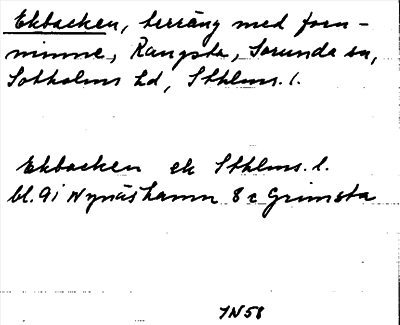 Ekbacken, terräng med forn-
minne, Rangsta, Sorunda sn,
Sotholms hd, Sthlms. l.
Ekbacken ek Sthlms. l.
bl. 9i Nynäshamn 8c Grimsta
JN58